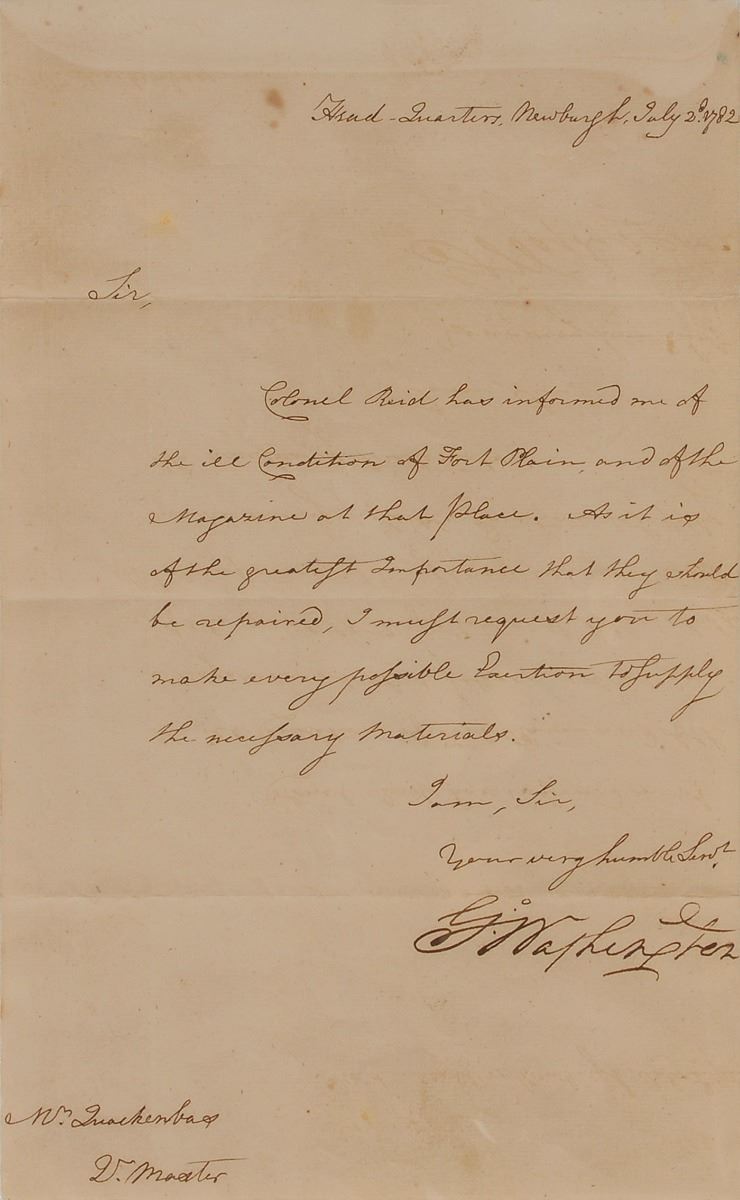 Head-Quarters, Newburgh, July 2d. 1782
Sir,
Colonel Reid has informed me of
the ill Condition of Fort Plain, and of the
Magazine at that place. As it is
of the greatest Importance that they should
be repaired, I must request you to
make every possible Exertion to supply
the necessary Materials.
I am, Sir,
Your very humble Servt.
Go: Washington
Mr. Quackenbas
Q. Master